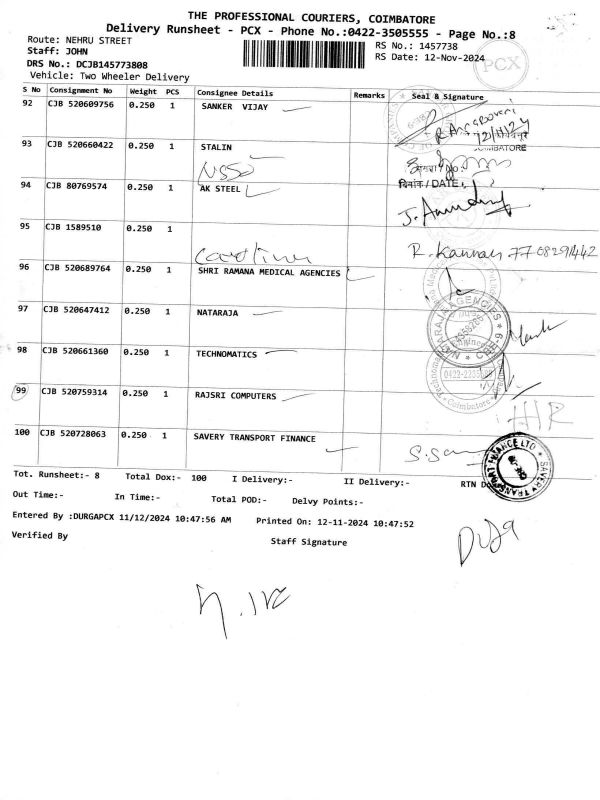 THE PROFESSIONAL COURIERS, COIMBATORE
Delivery Runsheet - PCX - Phone No.:0422-3505555 - Page No.:8
Route: NEHRU STREET
RS No.: 1457738
Staff: JOHN
RS Date: 12-Nov-2024
DRS No.: DCJB145773808
PCX
Vehicle: Two Wheeler Delivery
S No Consignment No Weight PCS Consignee Details Remarks Seal & Signature
92 CJB 520609756 0.250 1 SANKER VIJAY
12/11/24
COIMBATORE
93 CJB 520660422 0.250 1 STALIN
दिनांक / DATE
94 CJB 80769574 0.250 1 AK STEEL
95 CJB 1589510 0.250 1
R. Kannan 7708291442
96 CJB 520689764 0.250 1 SHRI RAMANA MEDICAL AGENCIES
97 CJB 520647412 0.250 1 NATARAJA
NATARAJA AGENCIES
98 CJB 520661360 0.250 1 TECHNOMATICS
Coimbatore
99 CJB 520759314 0.250 1 RAJSRI COMPUTERS
100 CJB 520728063 0.250 1 SAVERY TRANSPORT FINANCE
SAVERY TRANSPORT FINANCE LTD
Tot. Runsheet:- 8 Total Dox:- 100 I Delivery:- II Delivery:- RTN
Out Time:- In Time:- Total POD:- Delvy Points:-
Entered By :DURGAPCX 11/12/2024 10:47:56 AM Printed On: 12-11-2024 10:47:52
Verified By Staff Signature